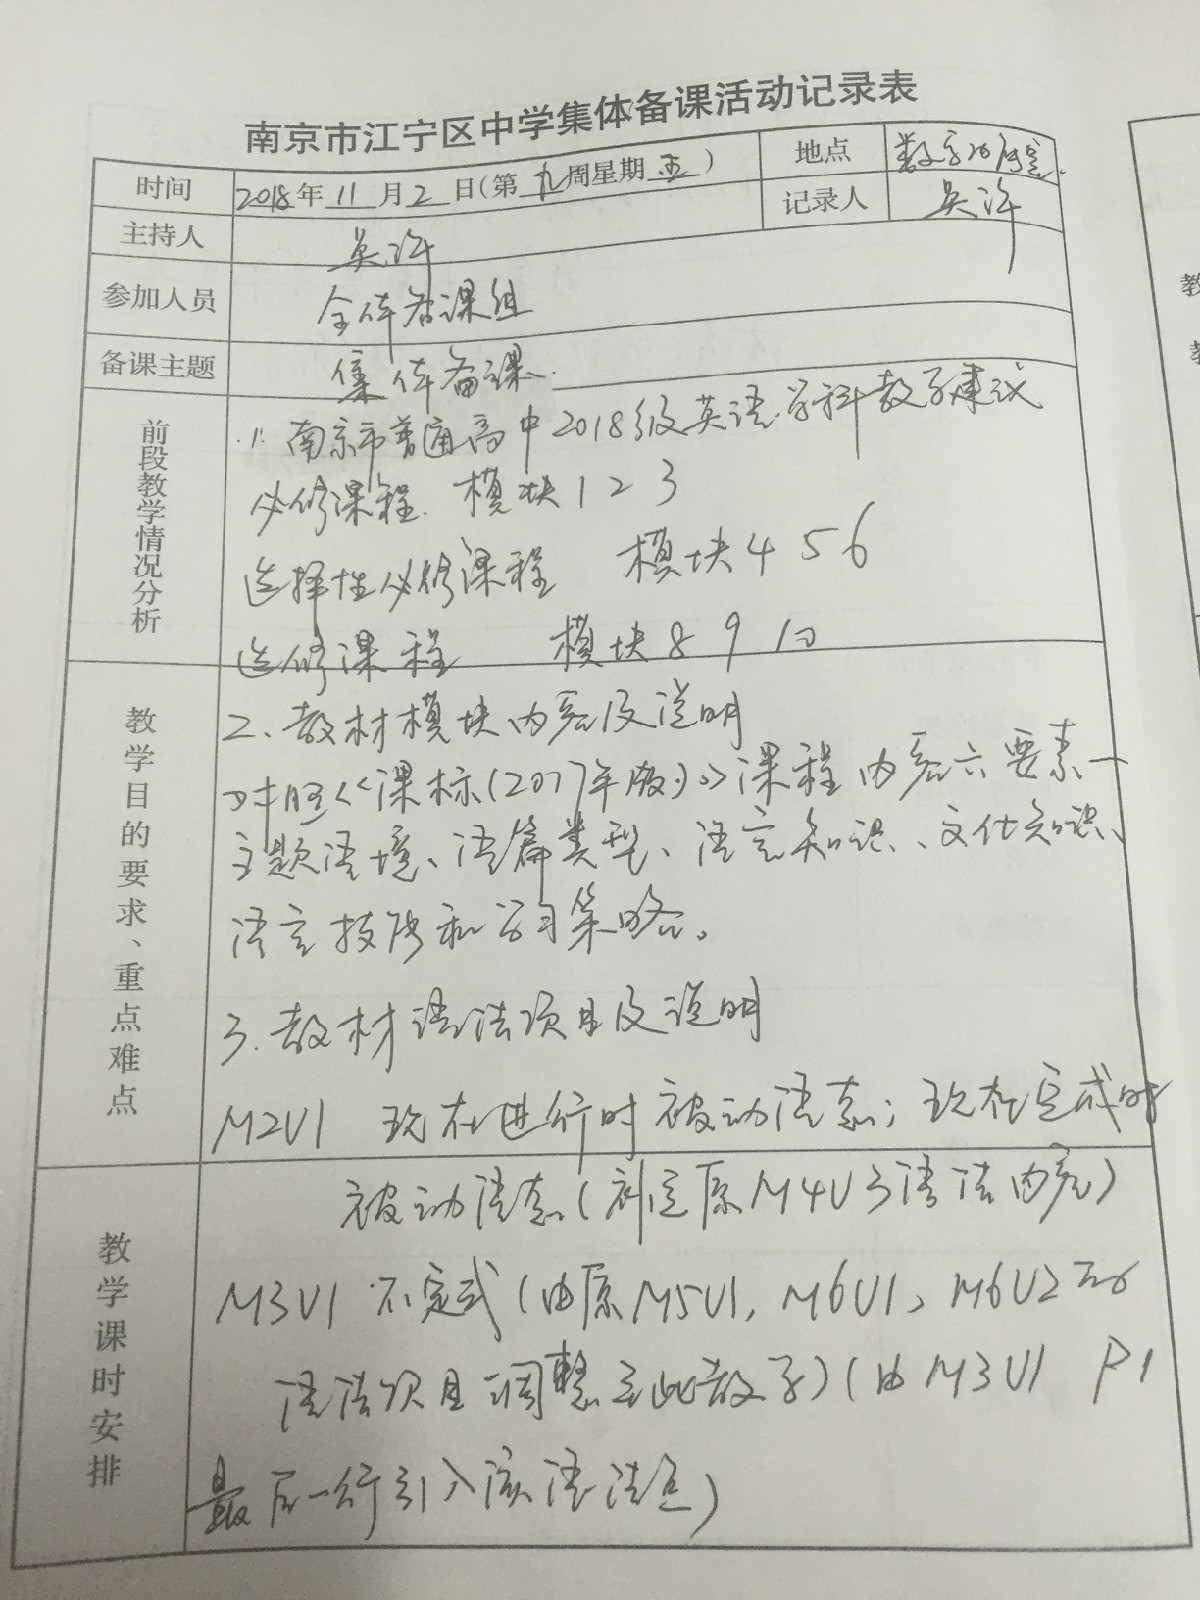 南京市江宁区中学集体备课活动记录表
时间 2018年11月2日(第九周星期五) 地点
主持人 吴许 记录人 吴许
参加人员 全体备课组
备课主题 集体备课
前段教学情况分析
1. 南京市普通高中2018级英语学科教学建议
必修课程 模块1 2 3
选择性必修课程 模块4 5 6
选修课程 模块8 9 10
教学目的要求、重点难点
2、教材模块内容及说明
对照《课标(2017年版)》课程内容六要素—
主题语境、语篇类型、语言知识、文化知识、
语言技能和学习策略。
3. 教材语法项目及说明
M2U1 现在进行时被动语态；现在完成时
教学课时安排
被动语态(补足原M4U3语法内容)
M3U1 不定式(由原M5U1, M6U1, M6U2
语法项目调整至此教学)(由M3U1 P1
最后一行引入该语法点)